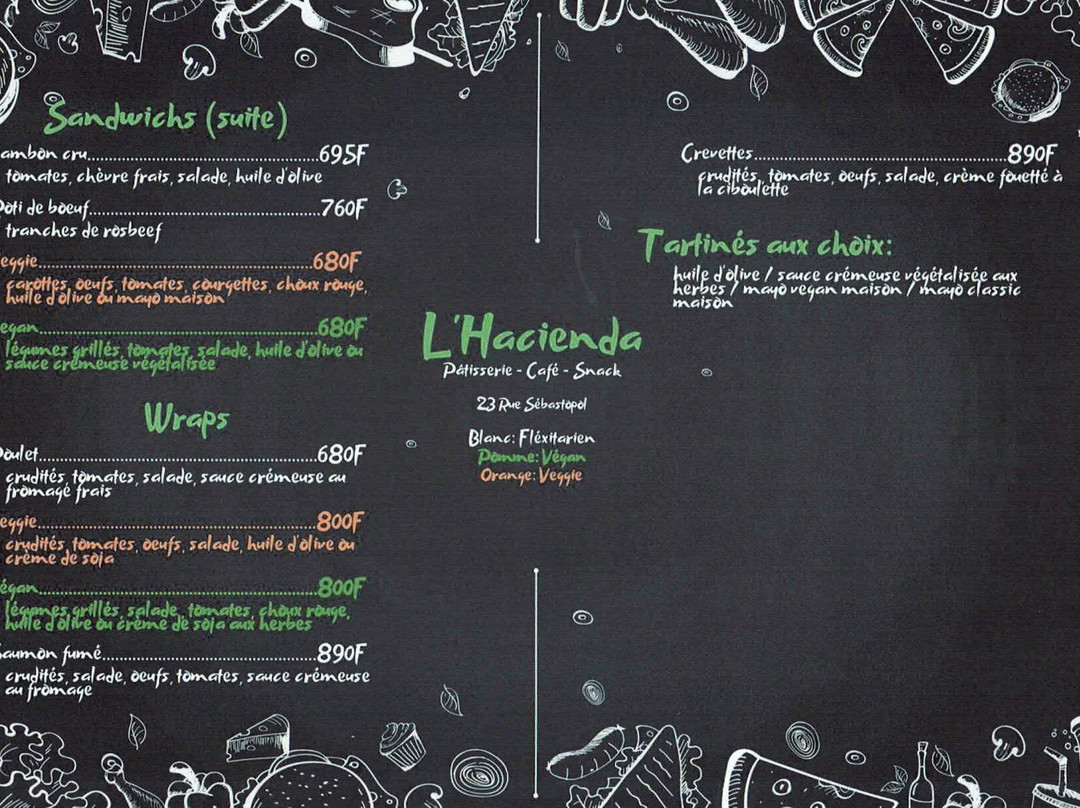 Sandwichs (suite)
ambon cru..........695F
tomates, chèvre frais, salade, huile d'olive
ôti de boeuf..........760F
tranches de rosbeef
eggie..........680F
carottes, oeufs, tomates, courgettes, choux rouge,
huile d'olive ou mayo maison
egan..........680F
légumes grillés, tomates, salade, huile d'olive ou
sauce crémeuse végétalisée
Wraps
oulet..........680F
crudités, tomates, salade, sauce crémeuse au
fromage frais
eggie..........800F
crudités, tomates, oeufs, salade, huile d'olive ou
crème de soja
égan..........800F
légumes grillés, salade, tomates, choux rouge,
huile d'olive ou crème de soja aux herbes
aumon fumé..........890F
crudités, salade, oeufs, tomates, sauce crémeuse
au fromage
L'Hacienda
Pâtisserie - Café - Snack
23 Rue Sébastopol
Blanc: Fléxitarien
Pomme: Végan
Orange: Veggie
Crevettes..........890F
crudités, tomates, oeufs, salade, crème fouetté à
la ciboulette
Tartinés aux choix:
huile d'olive / sauce crémeuse végétalisée aux
herbes / mayo vegan maison / mayo classic
maison